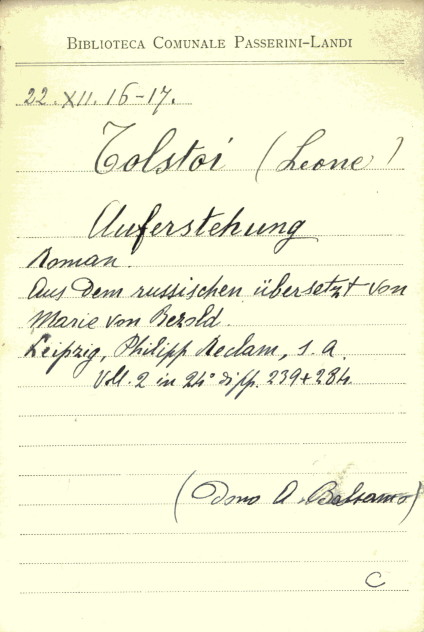 BIBLIOTECA COMUNALE PASSERINI-LANDI
22.XII.16-17.
Tolstoi (Leone)
Auferstehung
Roman.
Aus dem russischen übersetzt von
Marie von Bezold.
Leipzig, Philipp Reclam, s. a.
Voll. 2 in 24° di pp. 239+284.
(Dono A. Balsamo)
C